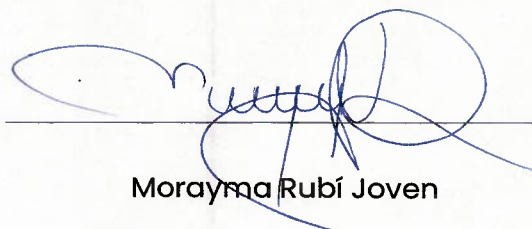 Morayma Rubí Joven